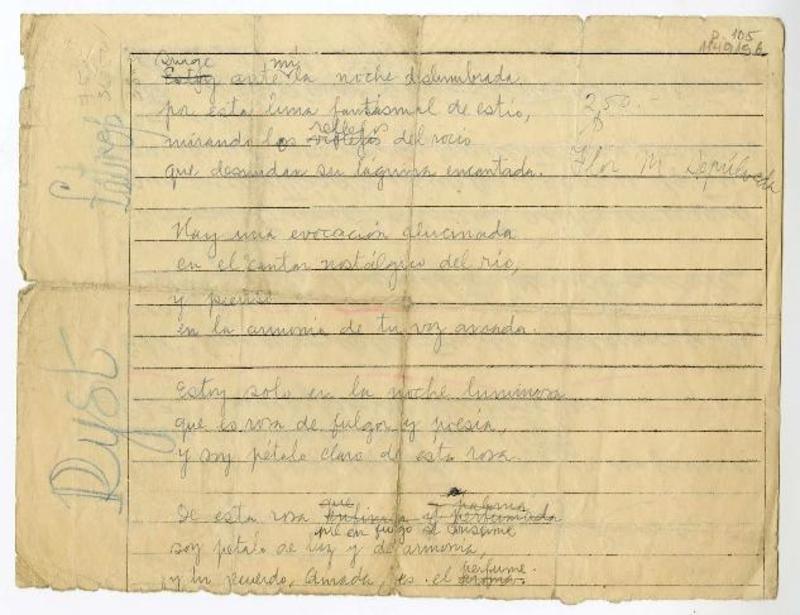 Surge mi
Estoy ante la noche deslumbrada
por esta luna fantasmal de estio,
mirando los violetas reflejos del rocio
que desnudan su lágrima encantada.
Hay una evocación alucinada
en el cantar nostálgico del río,
y pienso
en la armonia de tu voz amada.
Estoy solo en la noche luminosa
que es rosa de fulgor y poesía,
y soy pétalo claro de esta rosa.
que paloma
De esta rosa y perfumada
que en fuego se consume
soy pétalo de luz y de armonia,
y tu recuerdo, Amada, es el aroma. perfume.
2,50.-
Flor M. Sepúlveda
p. 105